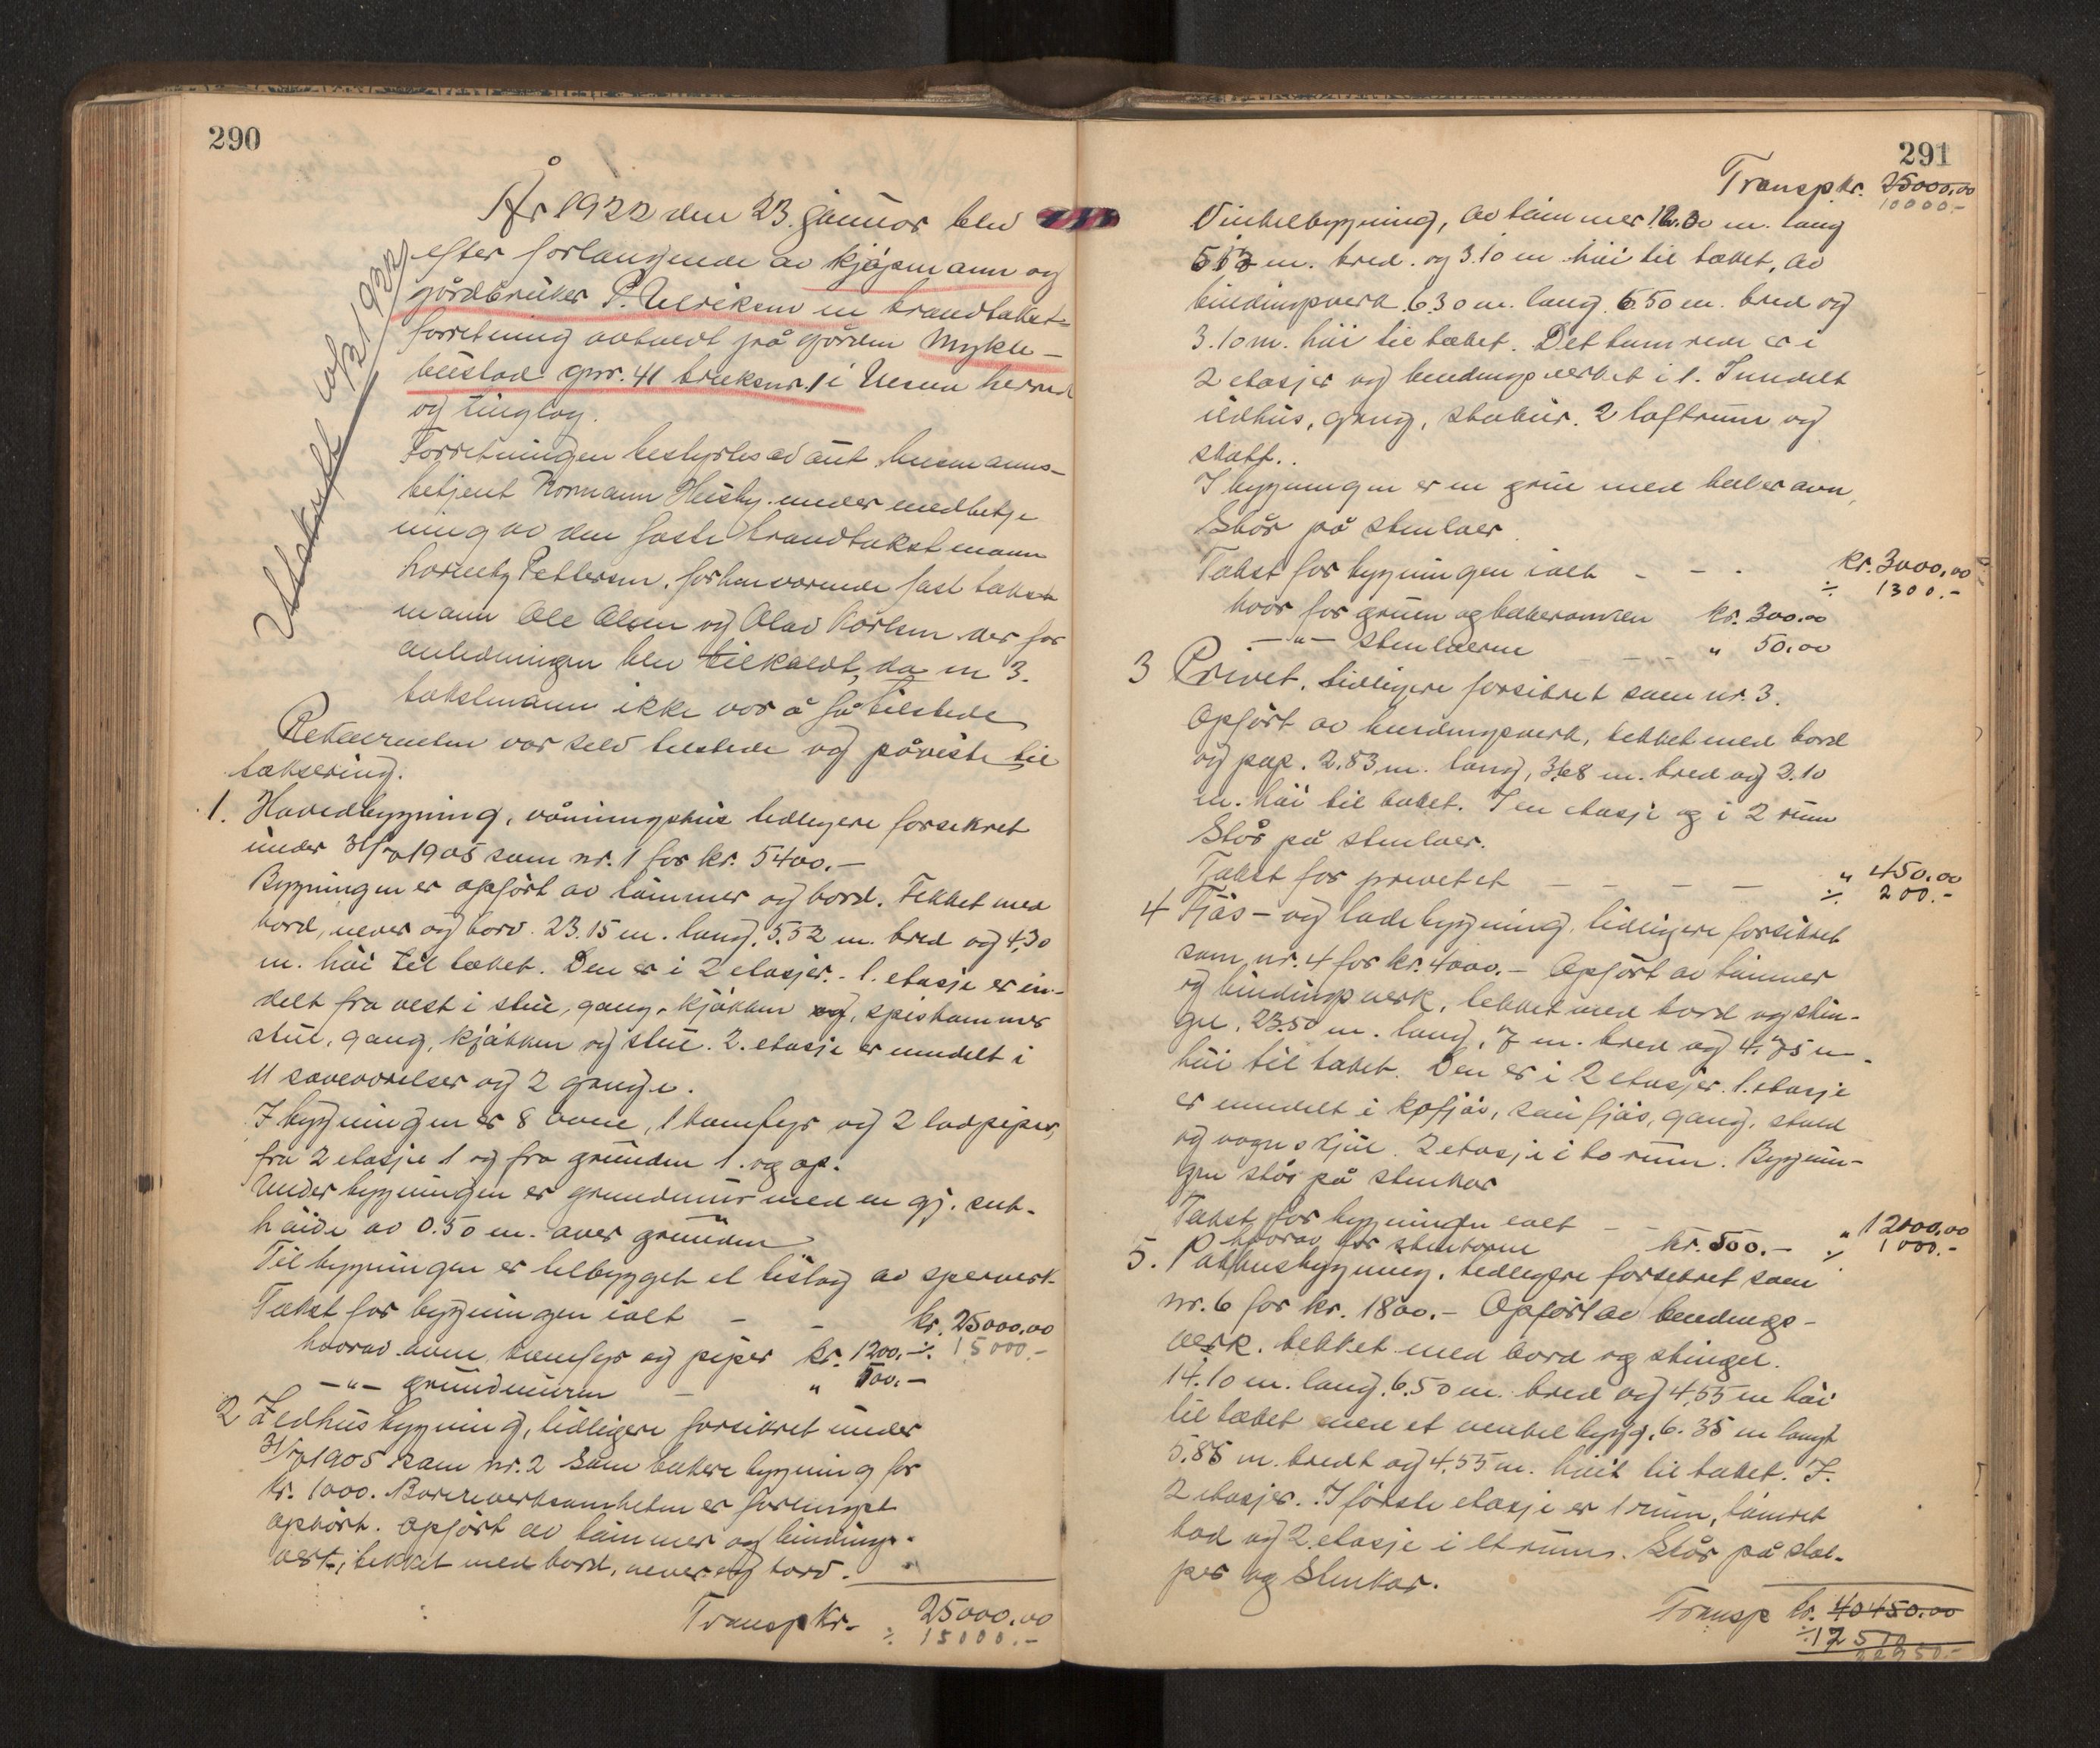 290
År 1922 den 23. januar blev
efter forlangende av kjøpmann og
gårdbruker P. Ulriksen en brandtakst-
forretning avholdt på gården Mykle-
bustad gnr. 41 bruksnr. 1 i Nesna herred
og tinglag.
Forretningen bestyrtes av aut. lensmanns-
betjent Normann Husby under medbetje
ning av den faste brandtakstmann
Hornely Pettersen, forhenværende fast takst
mann Ole Olsen og Olav Karlsen der for
anledningen blev tilkaldt, da en 3.
takstmann ikke var å få tilstede
Rekvirenten var selv tilstede og påviste til
taksering.
1. Hovedbygning, våningshus tidligere forsikret
under 31/7 1905 som nr. 1 for kr. 5400.-
Bygningen er opført av tømmer og bord. Tekket med
bord, never og torv. 23.15 m. lang, 5.52 m. bred og 4.30
m. høi til taket. Den er i 2 etasjer. 1. etasje er in-
delt fra vest i stue, gang, kjøkken og, spiskammer
stue, gang, kjøkken og stue. 2. etasje er inndelt i
11 soveværelser og 2 gange.
I bygningen er 8 ovne, 1 komfyr og 2 lodpiper,
fra 2 etasje 1 og fra grunden 1. og op.
Under bygningen er grundmur med en gj. snit.
høide av 0.50 m. over grunden
Til bygningen er tilbygget et bislag av sperverk.
Takst for bygningen ialt - - kr. 25000.00
hvorav ovne, komfyr og piper kr. 1200.- ÷ 15000.-
-"- grundmuren - " 500.-
2 Ildhusbygning, tidligere forsikret under
31/7 1905 som nr. 2 som bakeribygning for
kr. 1000. Bakerivirksomheten er forlengst
ophørt. Opført av tømmer og bindings-
verk, tekket med bord, never og torv.
Transp kr. 25000.00
÷ 15000.-
291
Transp. kr. 25000.00
10000.-
Vinkelbygning, av tømmer 12.30 m. lang
5.13 m. bred. og 3.10 m høi til taket, av
bindingsverk 6.30 m. lang 6.50 m. bred og
3.10 m. høi til taket. Det tømrede er i
2 etasjer og bindingsverket i 1. Inndelt
ildhus, gang, stabur. 2 loftrum og
skott.
I bygningen er en grue med bakerovn,
Står på stenlaer.
Takst for bygningen ialt - - - kr. 3000.00
÷ 1300.-
hvor for gruen og bakerovnen kr. 300.00
-"- stenlaerne - - - " 50.00
3 Privet, tidligere forsikret som nr. 3.
Opført av bindingsverk, tekket med bord
og pap. 2.83 m. lang, 3.68 m. bred og 2.10
m. høi til taket. I en etasje og i 2 rum
Står på stenlaer.
Takst for privetet - - - - " 450.00
÷ 200.-
4 Fjøs- og ladebygning, tidligere forsikret
som nr. 4 for kr. 4000.- Opført av tømmer
og bindingsverk, tekket med bord og stin-
gel, 23.50 m. lang, 7 m. bred og 4.75 m.
høi til taket. Den er i 2 etasjer. 1. etasje
er inndelt i kofjøs, saufjøs, gang, stald
og vognskjul. 2 etasje i to rum. Bygnin-
gen står på stenkar
Takst for bygningen ialt - - " 12000.00
hvorav for stenkarene kr. 500.- ÷ 1000.-
5. Pakhusbygning, tidligere forsikret som
nr. 6 for kr. 1800.- Opført av bindings-
verk, tekket med bord og stingel.
14.10 m. lang, 6.50 m. bred og 4,55 m høi
til taket med et vinkelbygg, 6.35 m langt
5.85 m. bredt og 4,55 m. høit til taket. I
2 etasjer. I første etasje er 1 rum, tømret
bod og 2. etasje i et rum. Står på stol-
per og stenkar.
Transp kr. 40450.00
÷ 17 5
22950.-